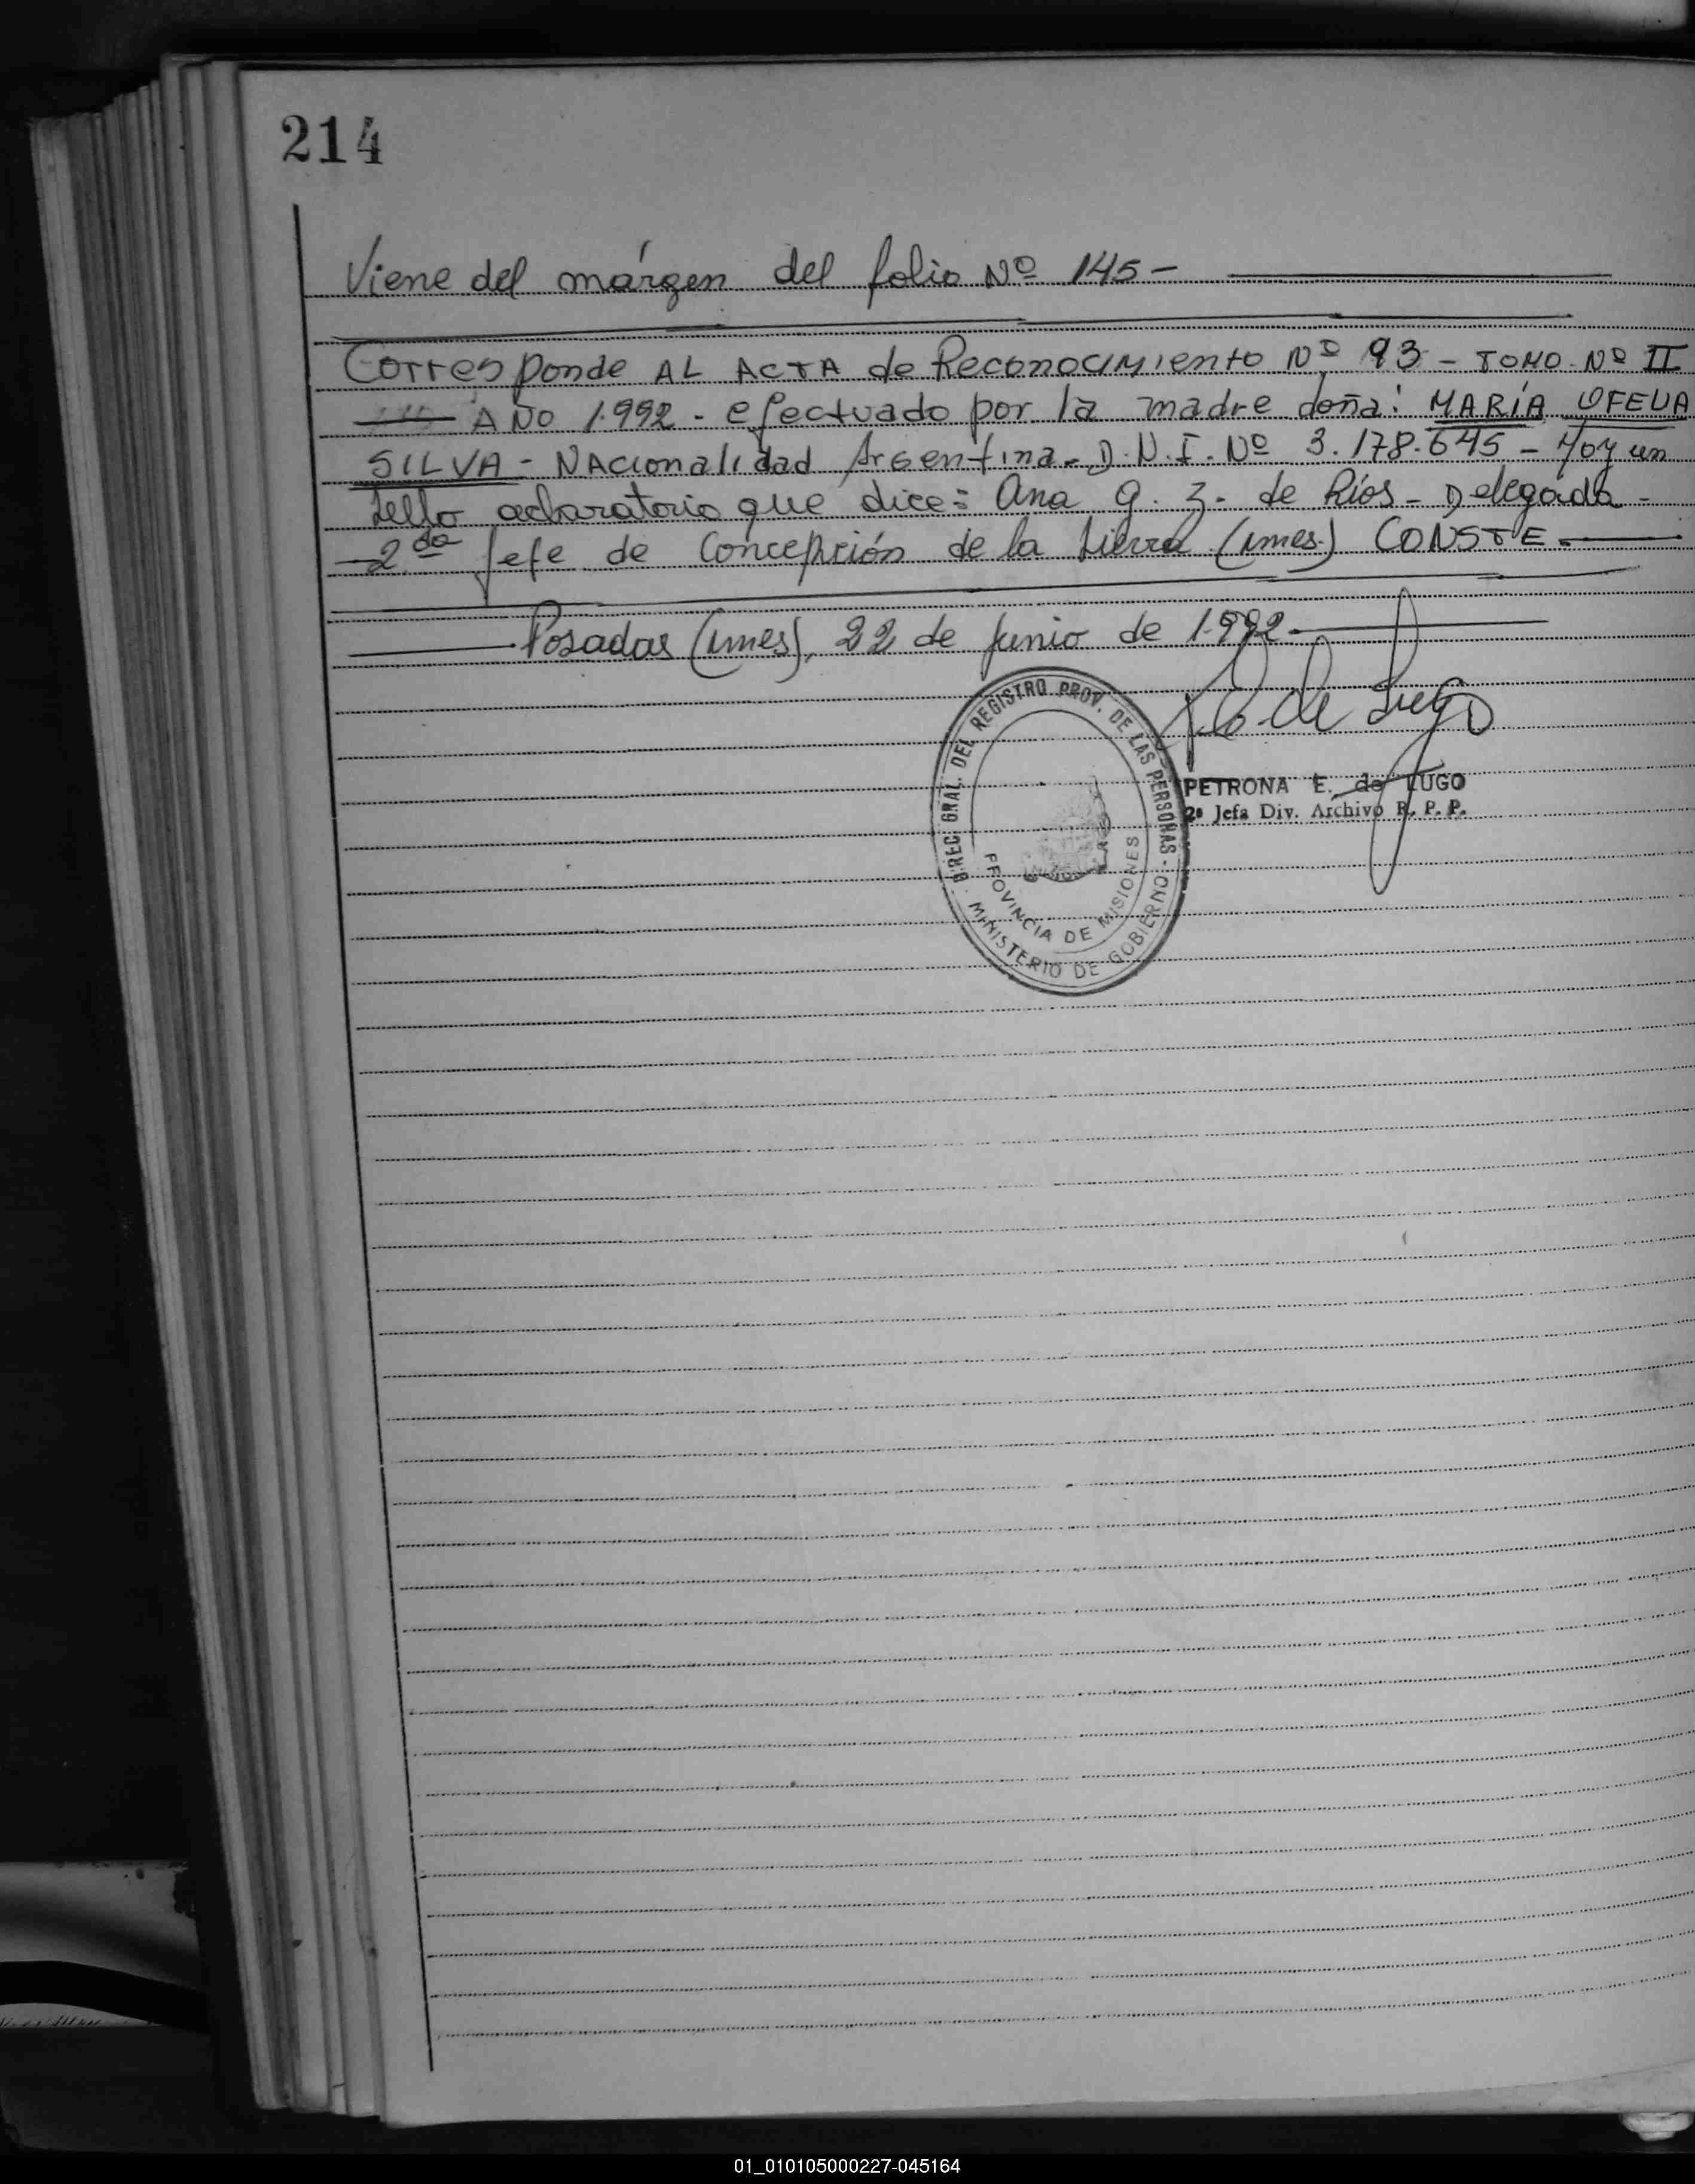 214
Viene del márgen del folio Nº 145-
Corresponde AL ACTA de Reconocimiento Nº 93 - TOMO Nº II
AÑO 1.992 - efectuado por la madre doña: MARÍA OFELIA
SILVA - Nacionalidad Argentina - D.N.I. Nº 3.178.645 - Hay un
sello aclaratorio que dice: Ana G. Z. de Ríos - Delegada -
2da Jefe de Concepción de la Sierra (Mnes.) CONSTE.
Posadas (Mnes), 22 de Junio de 1.992.
E. de Lugo
PETRONA E. de LUGO
2ª Jefa Div. Archivo R. P. P.
DIREC. GRAL. DEL REGISTRO PROV. DE LAS PERSONAS - MINISTERIO DE GOBIERNO
PROVINCIA DE MISIONES
01_010105000227-045164